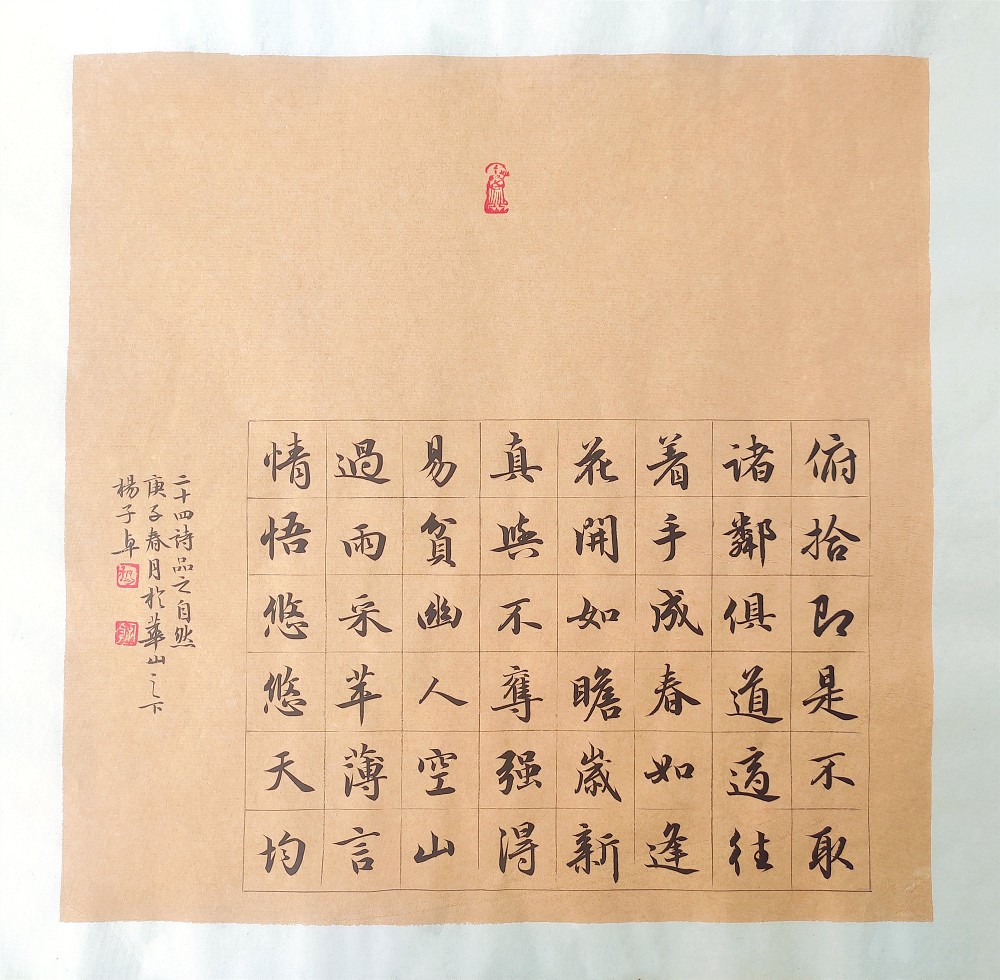 俯拾即是不取
諸鄰俱道適往
着手成春如逢
花開如瞻嵗新
真與不奪强得
易貧幽人空山
過雨采苹薄言
情悟悠悠天均
二十四詩品之自然
庚子春月於華山之下
楊子卓